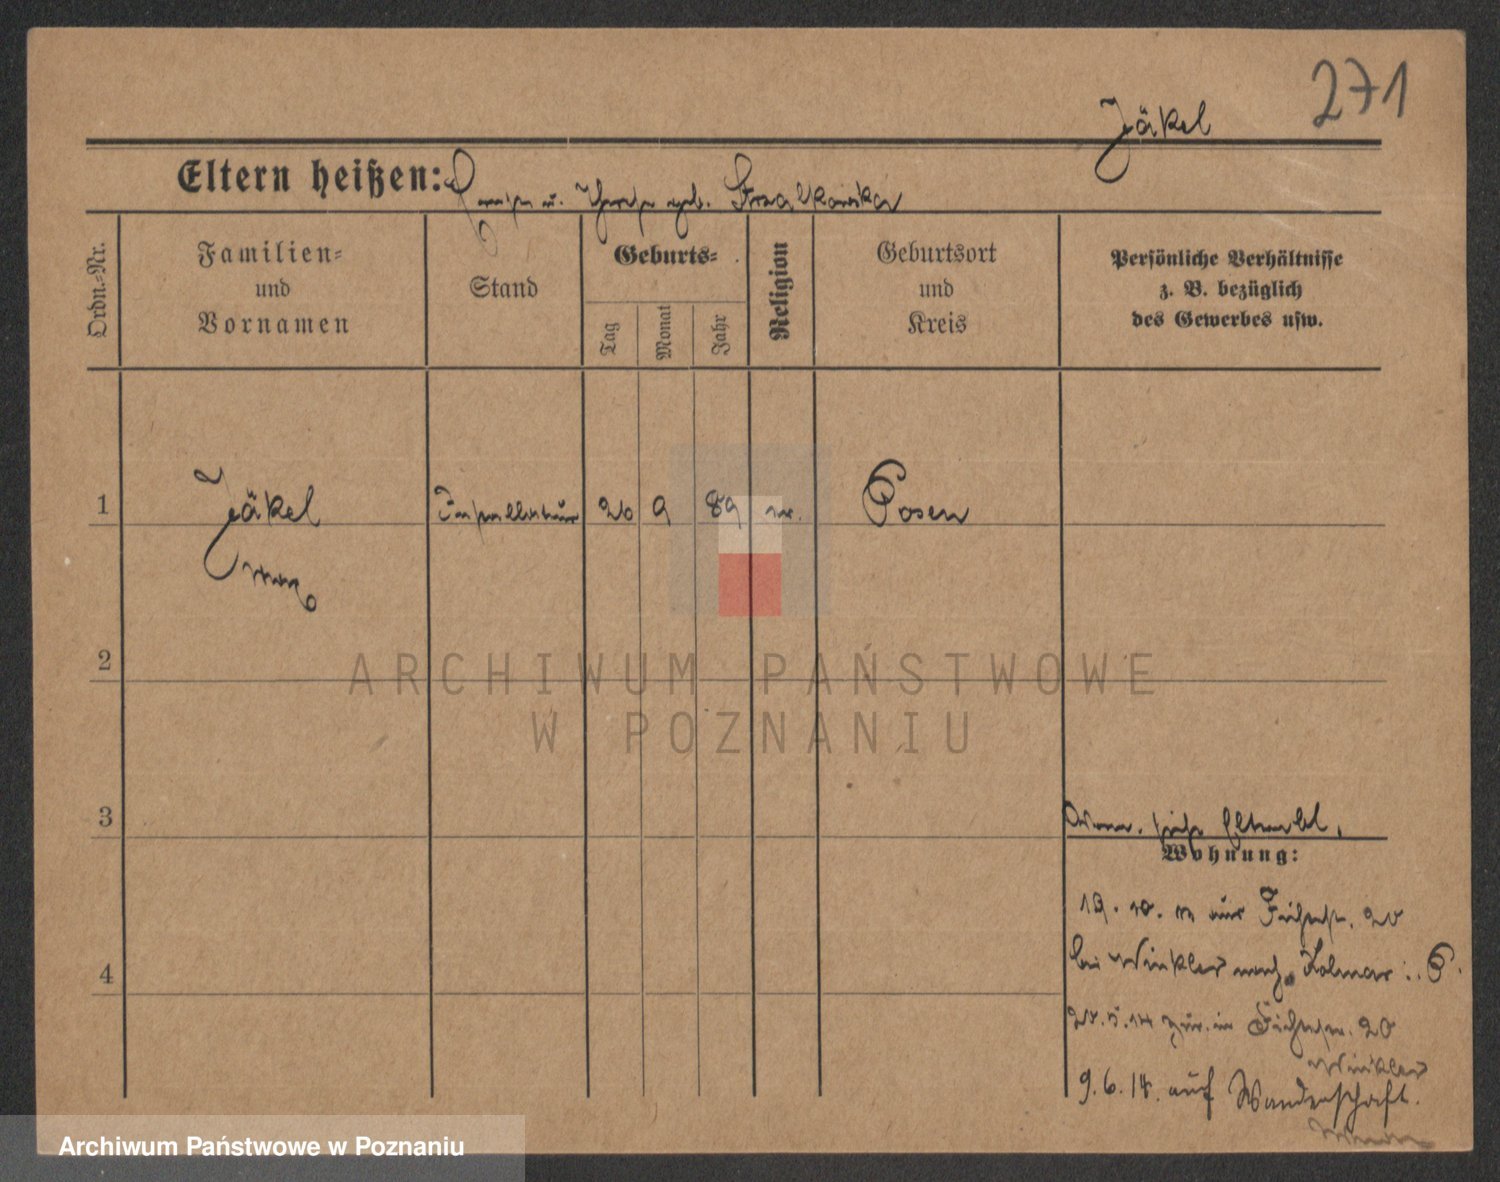 271
Jäkel
Eltern heißen: u. geb.
Ordn.-Nr.
Familien-
und
Vornamen
Stand
Geburts-
Tag
Monat
Jahr
Religion
Geburtsort
und
Kreis
Persönliche Verhältnisse
z. B. bezüglich
des Gewerbes usw.
1 Jäkel 20 9 89 Posen
2
ARCHIWUM PAŃSTWOWE
W POZNANIU
3
Wohnung:
19. 20
bei Winkler nach Kolmar i. P.
4
14 zur. in 20
Winkler
9.6.14. auf Wanderschaft.
Archiwum Państwowe w Poznaniu